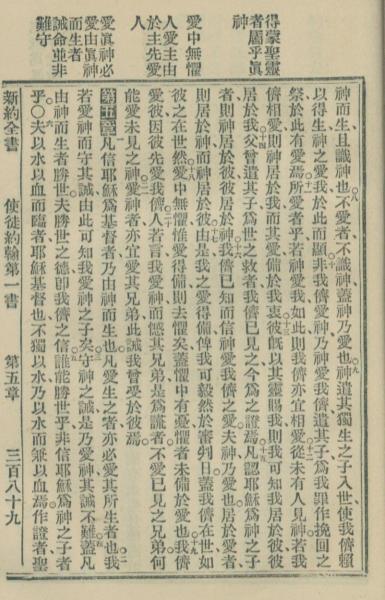 得蒙聖靈
者屬乎眞
神
愛中無懼
人愛主由
於主先愛
人
愛眞神必
愛由眞神
而生者
誡命並非
難守
神而生且識神也不愛者不識神蓋神乃愛也神遣其獨生之子入世使我儕賴
以得生神之愛我於此而顯非我儕愛神乃神愛我儕遣其子爲我罪作挽回之
祭於此有愛焉所愛者乎若神愛我如此則我儕亦宜相愛從未有人見神若我
儕相愛則神居於我而其愛備於我衷彼既以其靈賜我則我可知我居於彼彼
居於我父曾遣其子爲世之救者我儕已見之今爲之證焉凡認耶穌爲神之子
者則神居於彼彼居於神我儕已知而信神愛我儕之愛夫神乃愛也居於愛者
則居於神而神居於彼由是我之愛得備俾我可毅然於審判日蓋我儕在世如
彼之在世然愛中無懼惟愛得備則去懼矣蓋懼中有憂懼者未備於愛也我儕
愛彼因彼先愛我儕人若言我愛神而憾其兄弟是爲謊者不愛已見之兄弟何
能愛未見之神愛神者亦宜愛其兄弟此誡我嘗受於彼焉
第五章凡信耶穌爲基督者乃由神而生也凡愛生之者亦必愛其所生者也我
若愛神而守其誡由此可知我愛神之子矣守神之誡是乃愛神其誡不難蓋凡
由神而生者勝世夫勝世之德卽我儕之信誰能勝世乎非信耶穌爲神之子者
乎○夫以水以血而臨者耶穌基督也不獨以水乃以水而兼以血焉作證者聖
新約全書 使徒約翰第一書 第五章 三百八十九